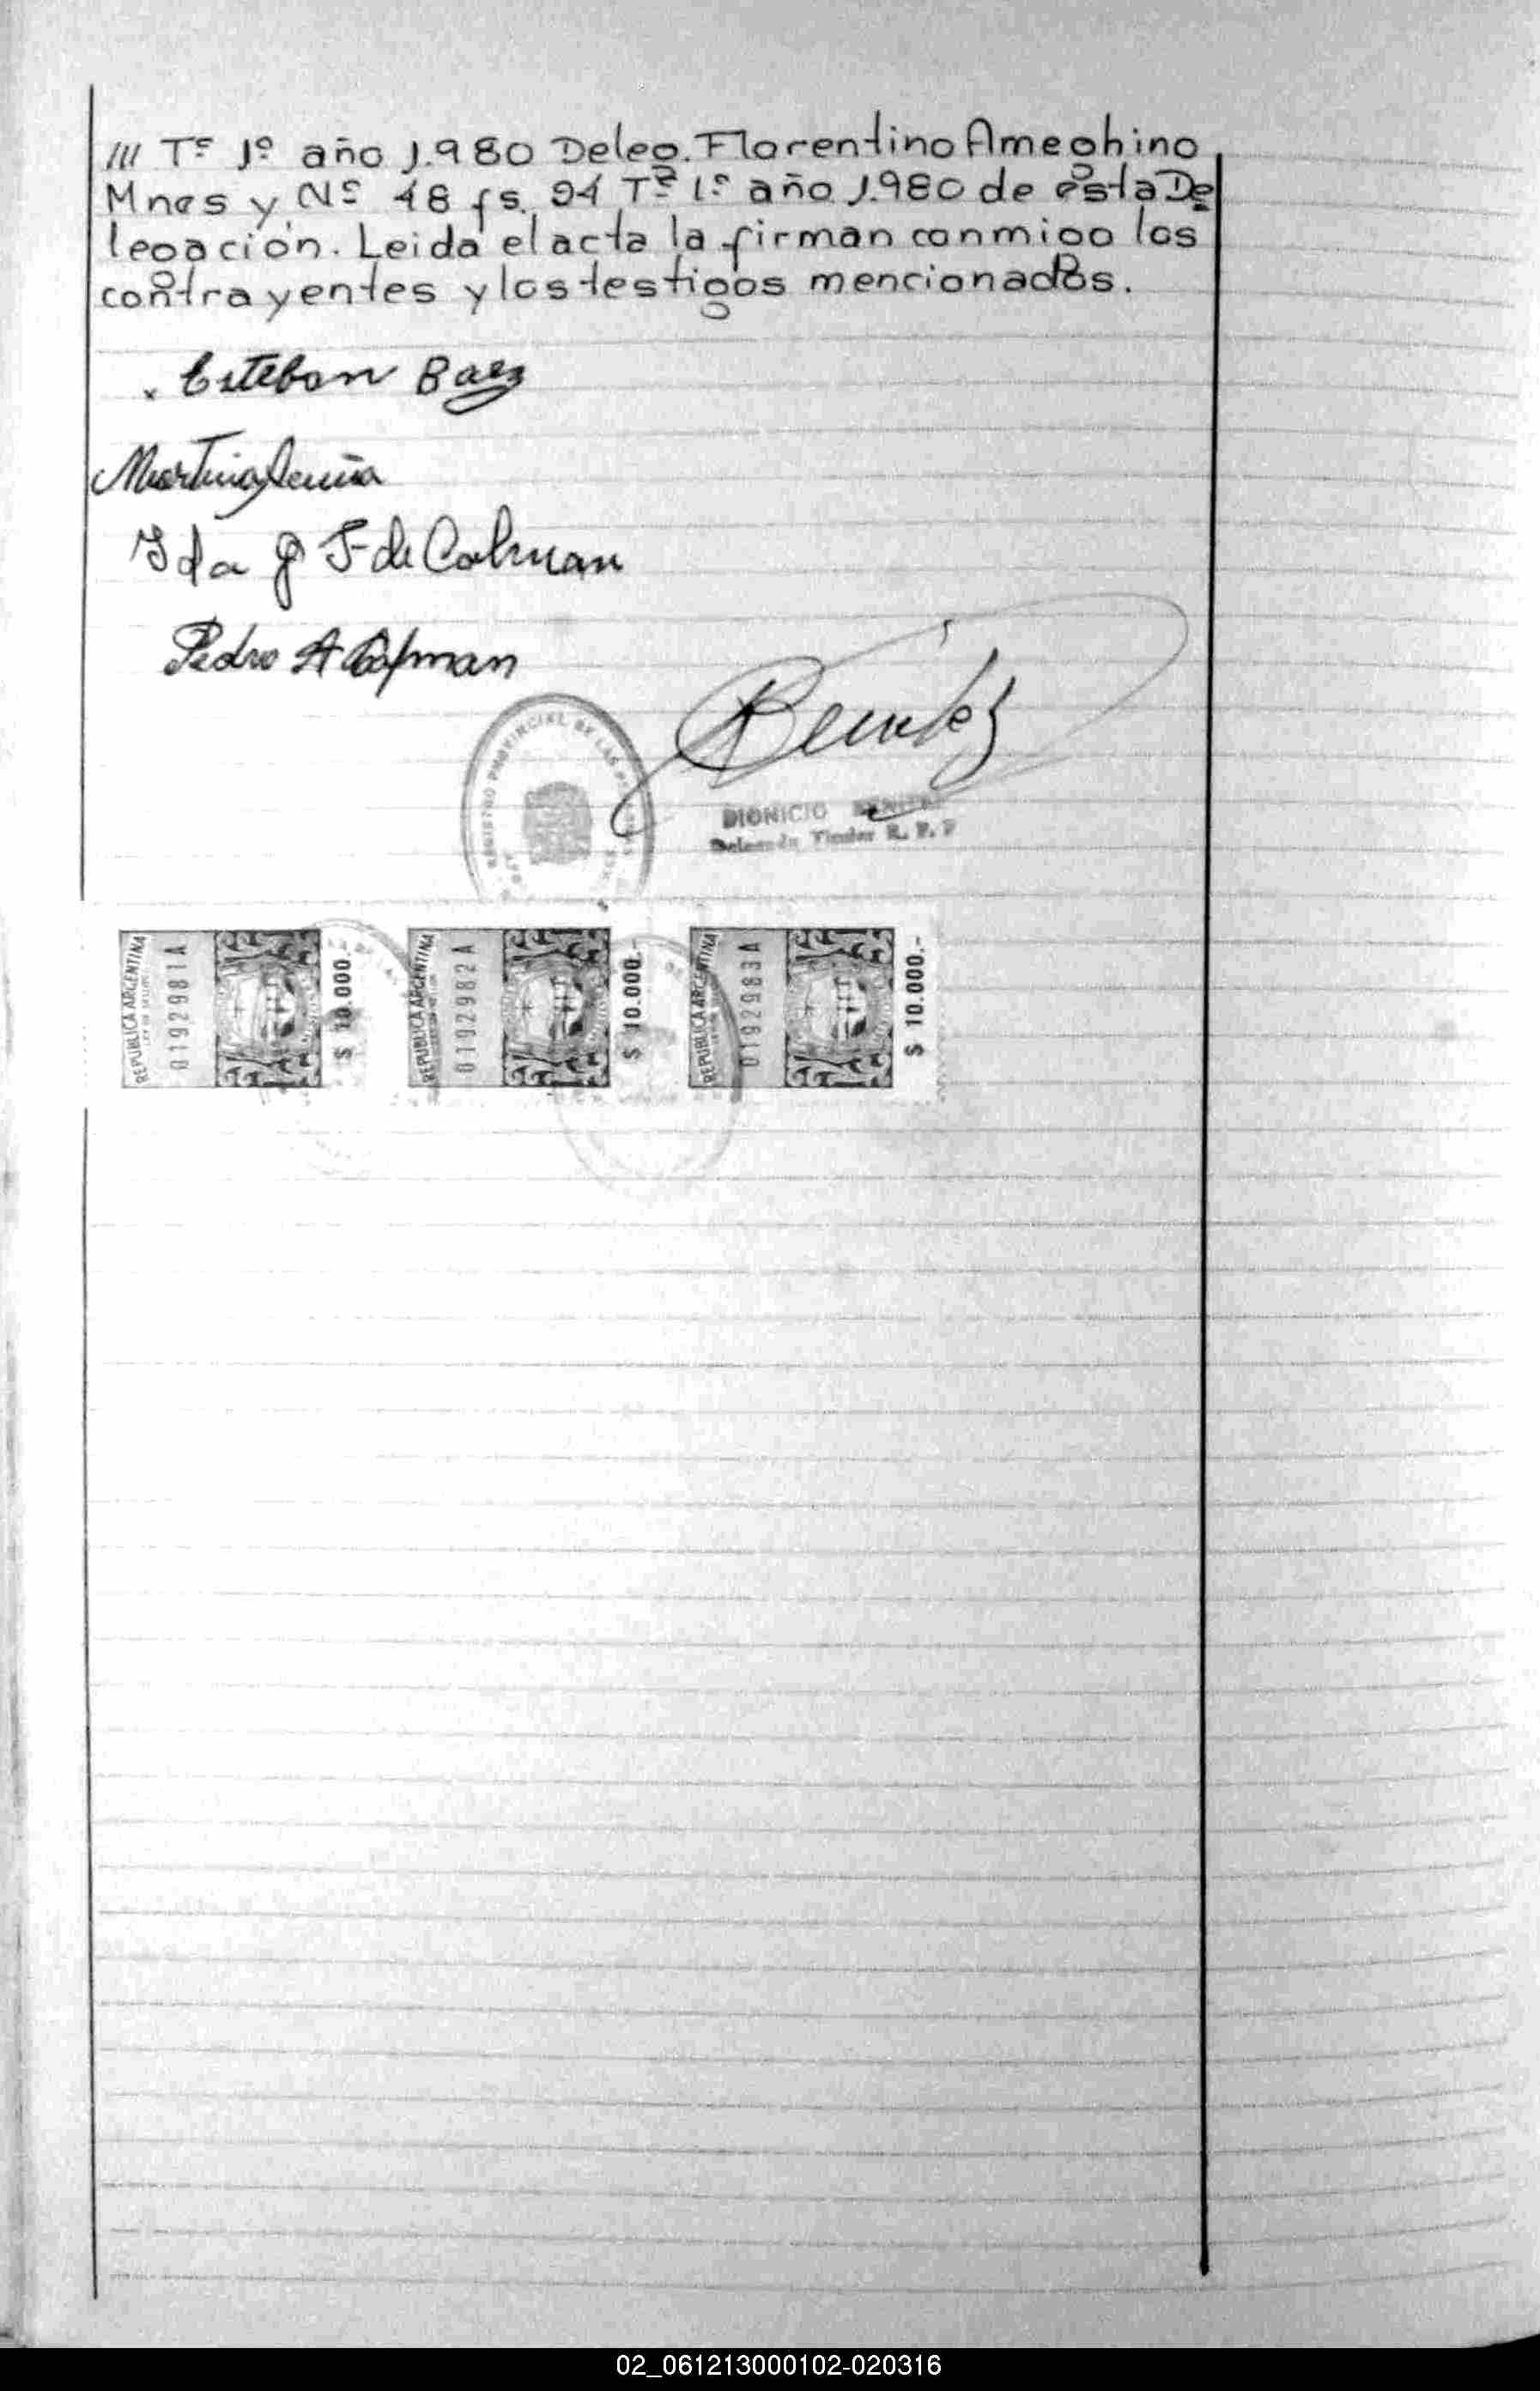 /// Tº 1º año 1.980 Deleg. Florentino Ameghino
Mnes y Nº 48 fs. 94 Tº 1º año 1.980 de esta De
legación. Leida el acta la firman conmigo los
contrayentes y los testigos mencionados.
Esteban Baez
Martina
Ida J F de Colman
Pedro A Colman
REGISTRO PROVINCIAL DE LAS
Benitez
DIONICIO BENITEZ
Delegado Titular R. P. P
REPUBLICA ARGENTINA
0192981A
$ 10.000.-
REPUBLICA ARGENTINA
0192982A
$ 10.000.-
REPUBLICA ARGENTINA
0192983A
$ 10.000.-
02_061213000102-020316